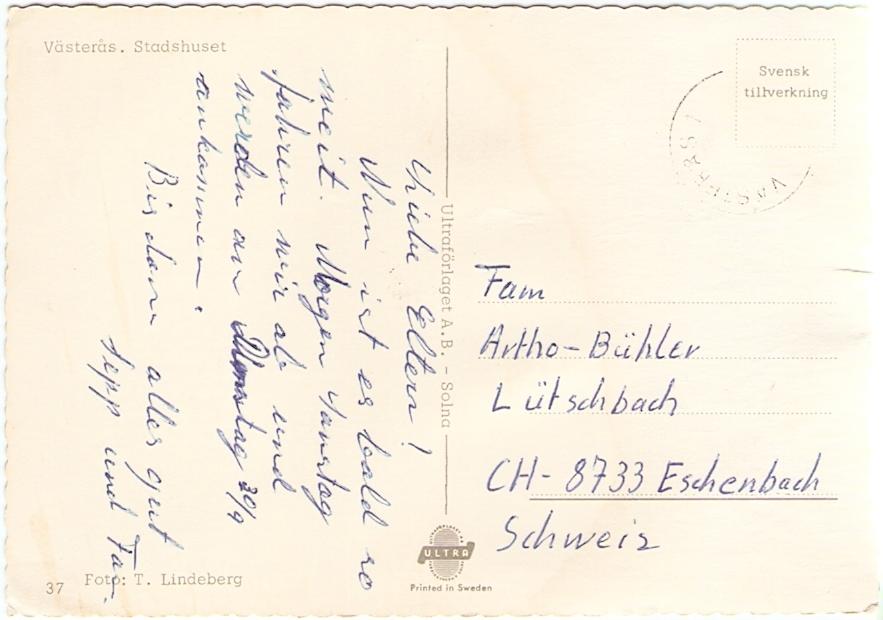 Västerås. Stadshuset
Liebe Eltern!
Nun ist es bald so
weit. Morgen Samstag
fahren wir ab und
werden am Dienstag 30/9
ankommen.
Bis dann alles gut
Sepp und Fam.
37 Foto: T. Lindeberg
Ultraförlaget A.B. - Solna
ULTRA
Printed in Sweden
Svensk
tillverkning
VÄSTERÅS 1
Fam
Artho-Bühler
Lütschbach
CH-8733 Eschenbach
Schweiz